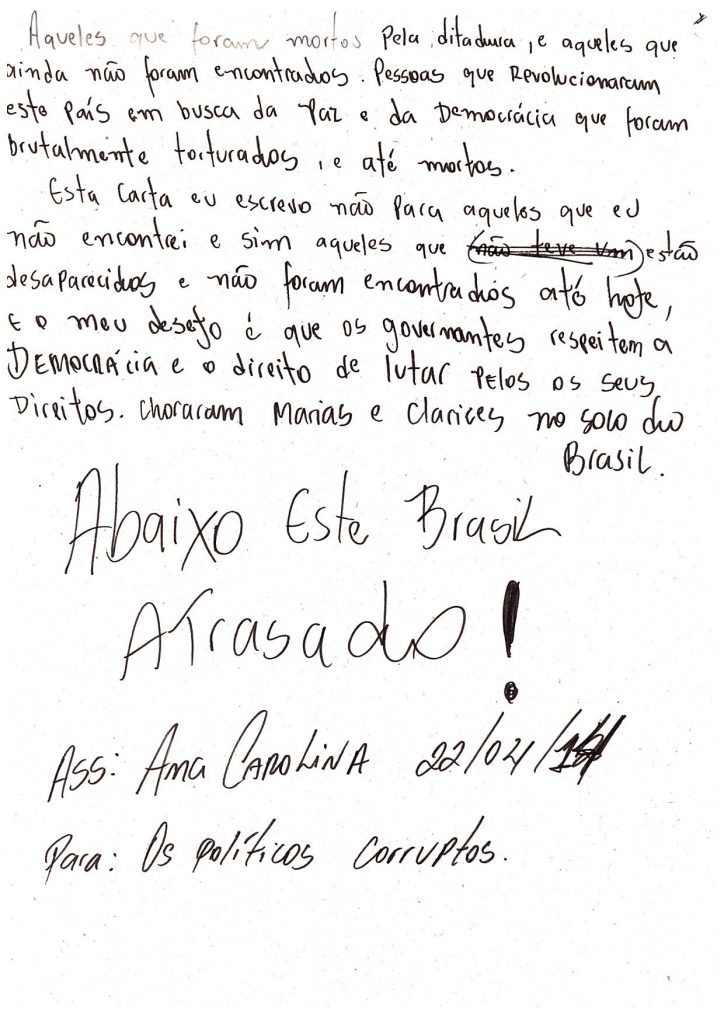 Aqueles que foram mortos Pela ditadura, e aqueles que
ainda não foram encontrados. Pessoas que Revolucionaram
este País em busca da Paz e da Democrácia que foram
brutalmente torturados, e até mortos.
Esta Carta eu escrevo não Para aqueles que eu
não encontrei e sim aqueles que (não teve um) estão
desaparecidos e não foram encontrados até hoje,
E o meu desejo é que os governantes respeitem a
DEMOCRÁcia e o direito de lutar PELOS os seus
Direitos. Choraram Marias e Clarices no solo do
Brasil.
Abaixo Este Brasil
ATrasado!
Ass: Ana CAROLINA 22/04/
Para: Os políticos corruptos.